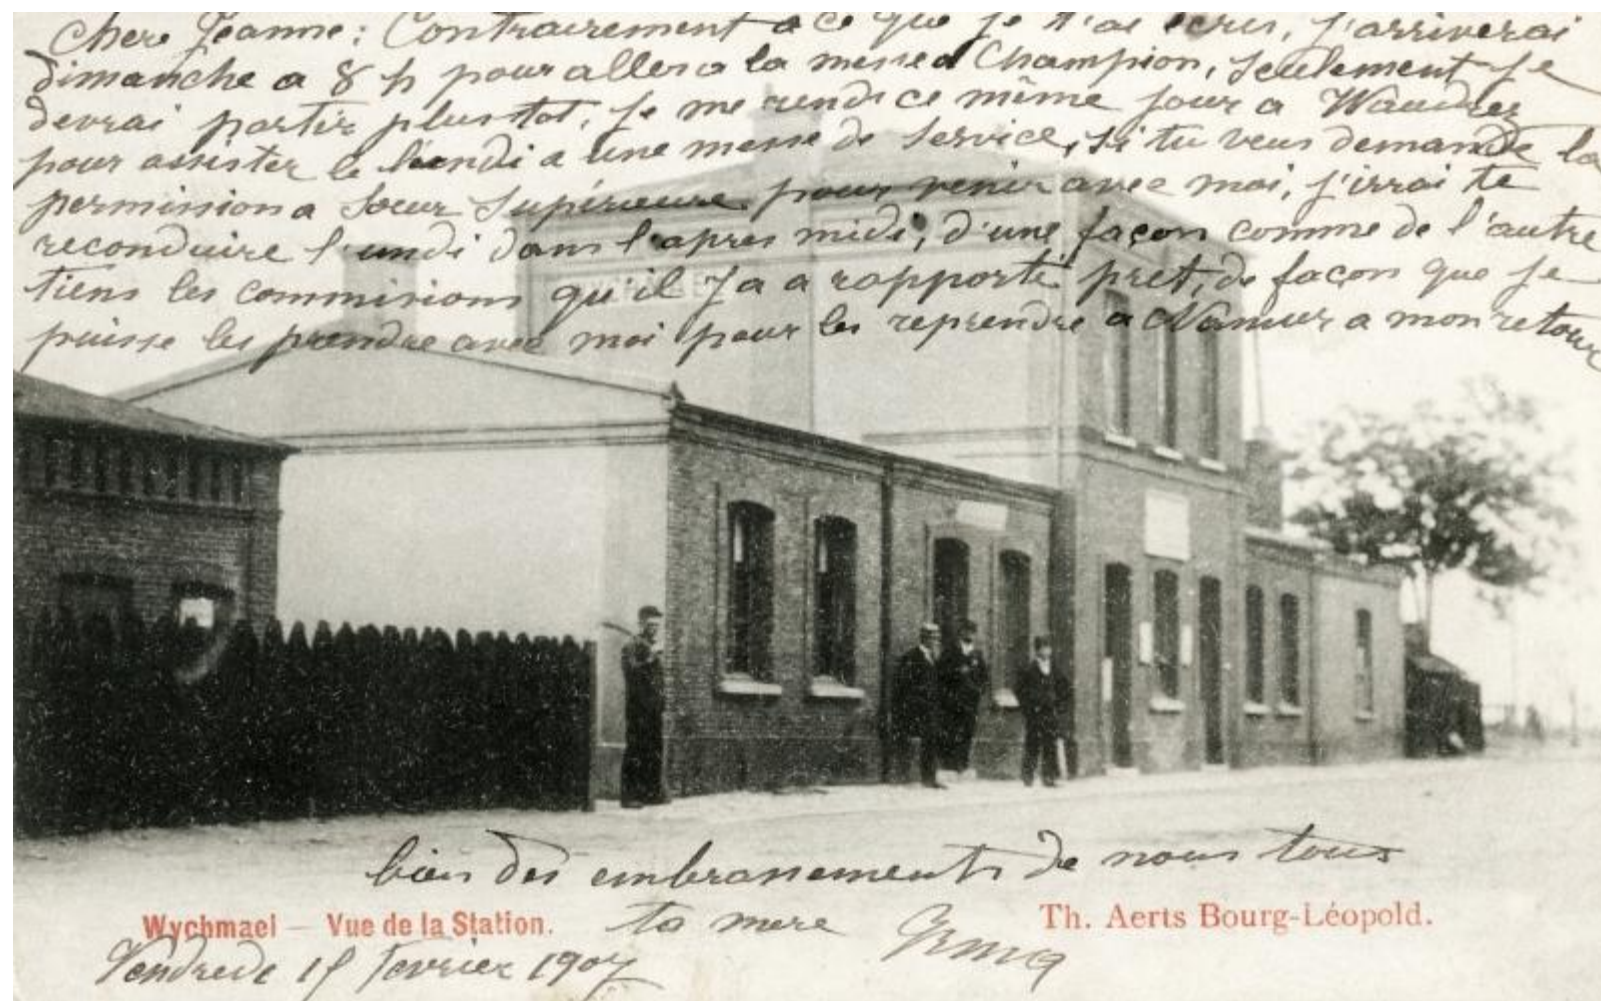 Chere Jeanne : Contrairement a ce que je t'ai ecris, j'arriverai
dimanche a 8 h pour aller a la messe a Champion, seulement je
devrai partir plus tot, je me rends ce même jour a Waudrez
pour assister le lundi a une messe de service, si tu veus demande la
permission a Sœur Supérieure pour venir avec moi, j'irrai te
reconduire l'undi dans l'apres midi, d'une façon comme de l'autre
tiens les commisions qu'il y a a rapporté pret, de façon que je
puisse les prendre avec moi pour les reprendre a Namur a mon retour
bien des embrassements de nous tous
ta mere
Wychmael — Vue de la Station.
Th. Aerts Bourg-Léopold.
Vendrede 15 Fevrier 1907